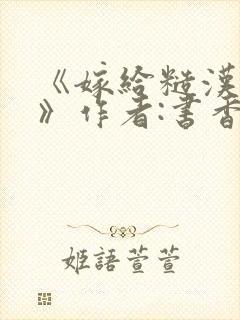 《嫁給糙漢
》作者:書香
姬語萱萱